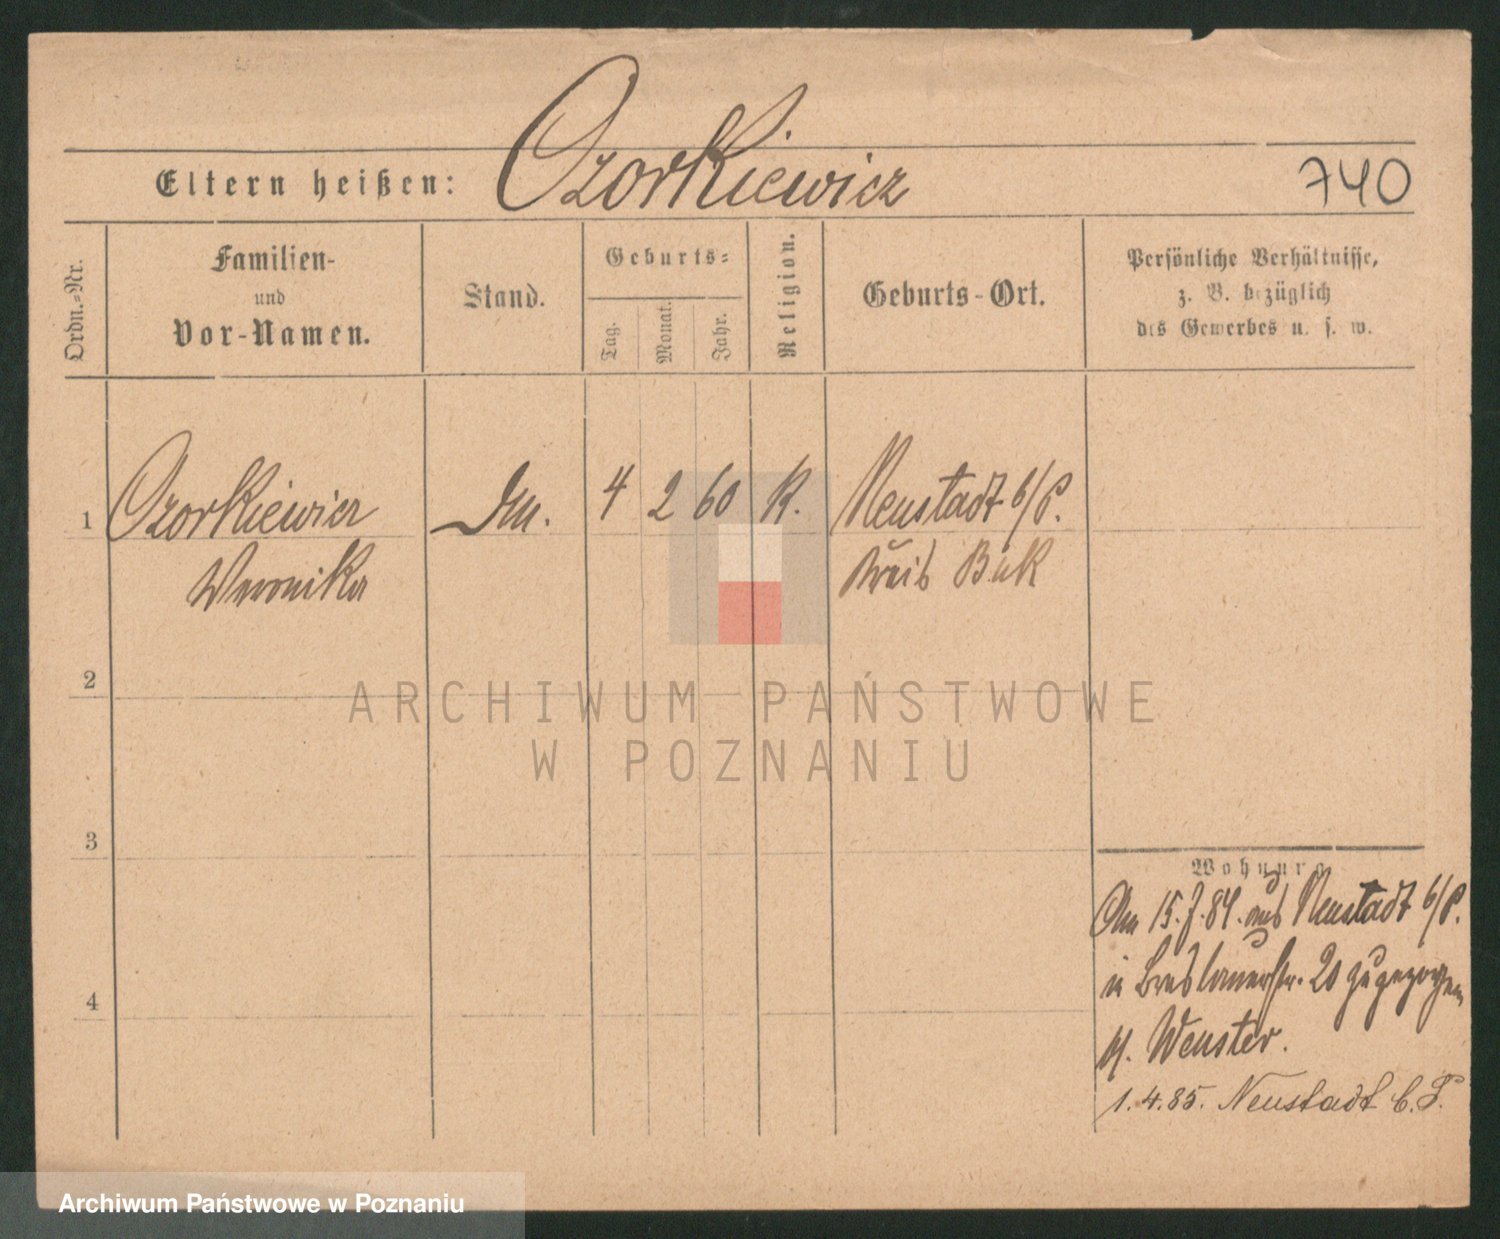 Ozorkiewicz
Eltern heißen:
740
Ordn.-Nr.
Familien-
und
Vor-Namen.
Stand.
Geburts-
Tag.
Monat.
Jahr.
Religion.
Geburts-Ort.
Persönliche Verhältnisse,
z. B. bezüglich
des Gewerbes u. s. w.
1 Ozorkiewicz 4 2 60 K. Neustadt b/P.
Weronika Kreis Buk
2
ARCHIWUM PAŃSTWOWE
W POZNANIU
3
Wohnung
Am 15. 7. 84. aus Neustadt b/P.
in Breslauerstr. 20 zugezogen
1.4.85. Neustadt b. P.
4
Archiwum Państwowe w Poznaniu